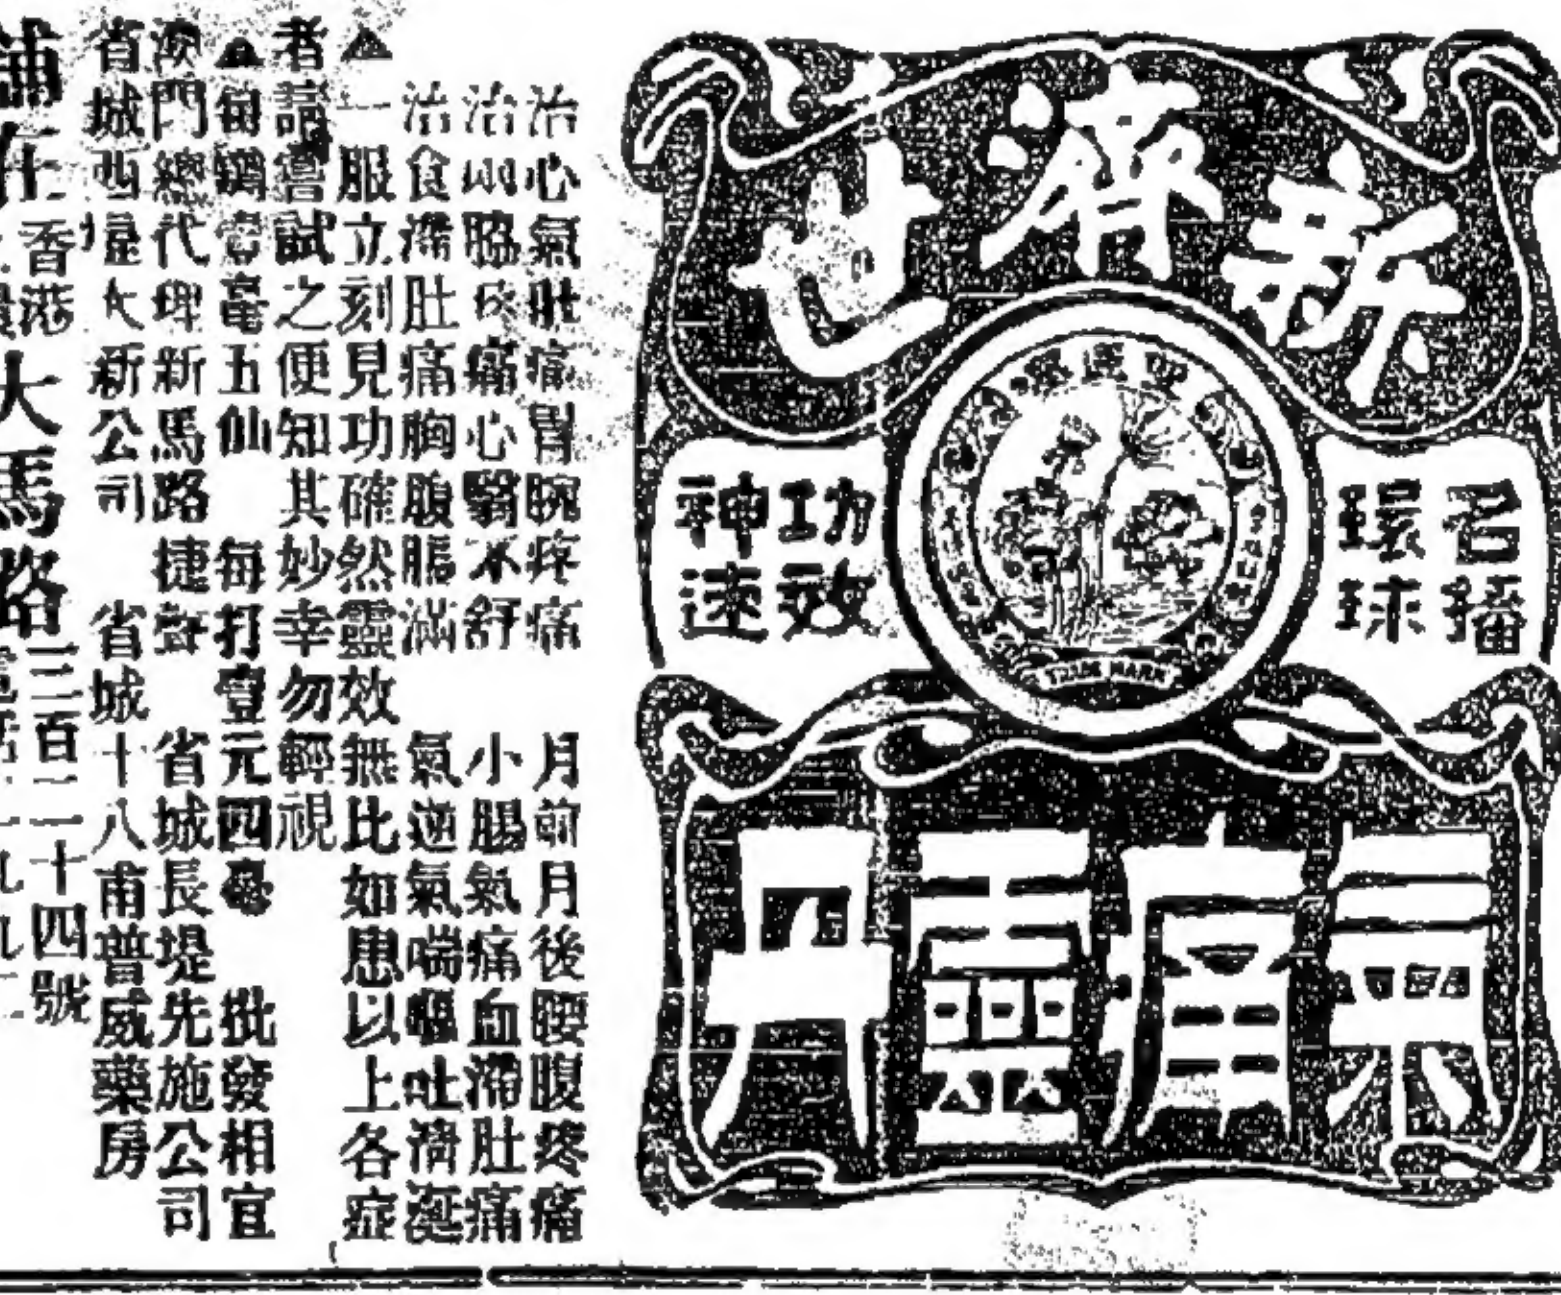 新濟世
名播環球
功效神速
TRADE MARK
氣痛靈丹
治心氣肚痛胃腕疼痛 月前月後腰腹疼痛
治兩脇疼痛心翳不舒 小腸氣痛血滯肚痛
治食滯肚痛胸腹脹滿 氣逆氣喘嘔吐清涎
▲一服立刻見功確然靈效 無比如患以上各症
者請嘗試之便知其妙幸勿輕視
▲每樽壹毫五仙 每打壹元四毫 批發相宜
澳門總代理新馬路捷聲 省城長堤先施公司
省城西堤大新公司 省城十八甫普威藥房
舖在香港大馬路三百二十四號